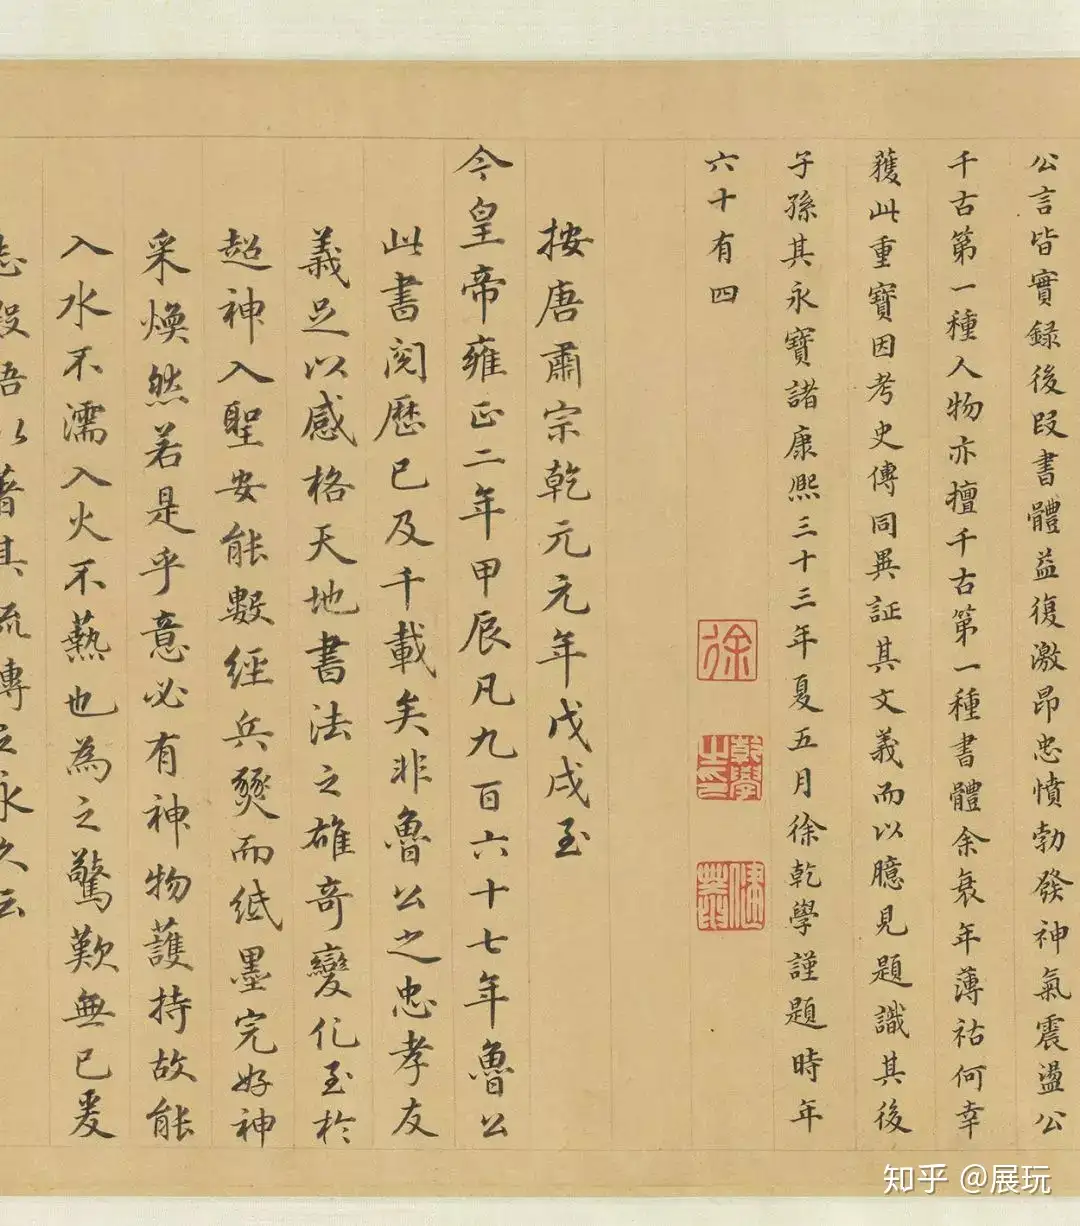 公言皆實錄後段書體益復激昂忠憤勃發神氣震盪公
千古第一種人物亦擅千古第一種書體余衰年薄祜何幸
獲此重寶因考史傳同異証其文義而以臆見題識其後
子孫其永寶諸康熙三十三年夏五月徐乾學謹題時年
六十有四
徐
乾學之印
健菴
按唐肅宗乾元元年戊戌至
今皇帝雍正二年甲辰凡九百六十七年魯公
此書閱歷已及千載矣非魯公之忠孝友
義足以感格天地書法之雄奇變化至於
超神入聖安能數經兵燹而紙墨完好神
采煥然若是乎意必有神物護持故能
入水不濡入火不熱也為之驚歎無已爰
志段語以著其流傳之永久云
知乎 @展玩